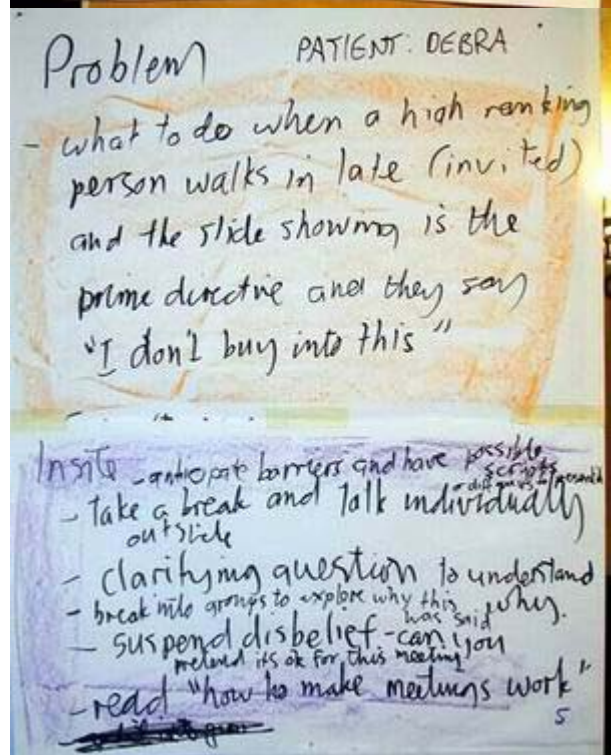 Problem PATIENT: DEBRA
- what to do when a high ranking
person walks in late (invited)
and the slide showing is the
prime directive and they say
"I don't buy into this"
Insite - anticipate barriers and have possible
scripts
- take a break and talk individually
outside
- clarifying question to understand
why.
- break into groups to explore why this
was said
- suspend disbelief - can you
pretend its ok for this meeting
- read "how to make meetings work"
5